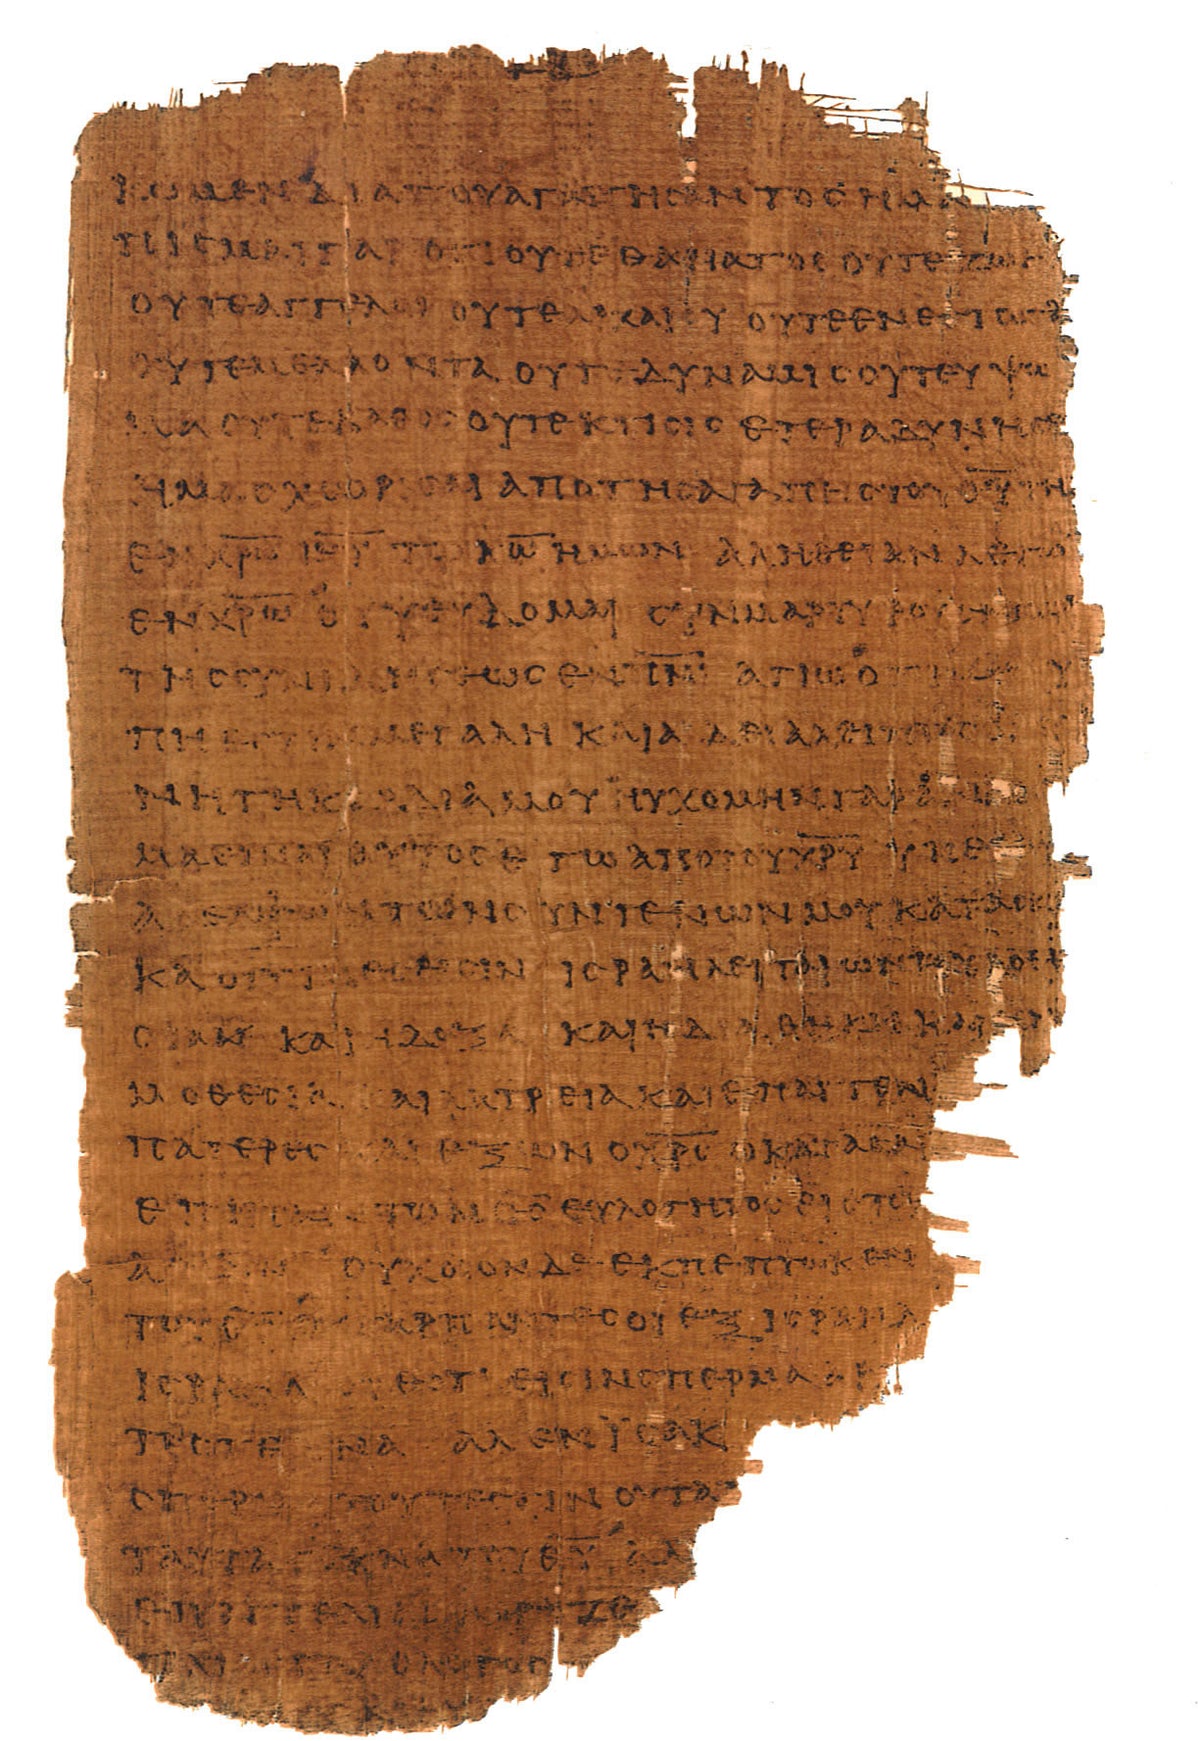 ΚΩΜΕΝ ΔΙΑ ΤΟΥ ΑΓΑΠΗϹΑΝΤΟϹ ΗΜΑ
ΠΙϹΜΑΙ ΓΑΡ ΟΤΙ ΟΥΤΕ ΘΑΝΑΤΟϹ ΟΥΤΕ ΖΩΗ
ΟΥΤΕ ΑΓΓΕΛΟΙ ΟΥΤΕ ΑΡΧΑΙ ΟΥ ΟΥΤΕ ΕΝΕϹΤΩΤΑ
ΟΥΤΕ ΜΕΛΛΟΝΤΑ ΟΥΤΕ ΔΥΝΑΜΙϹ ΟΥΤΕ ΥΨΩ
ΜΑ ΟΥΤΕ ΒΑΘΟϹ ΟΥΤΕ ΚΤΙϹΙϹ ΕΤΕΡΑ ΔΥΝΗϹΕ
ΗΜΑϹ ΧΩΡΙϹΑΙ ΑΠΟ ΤΗϹ ΑΓΑΠΗϹ ΤΟΥ Θ̅Υ̅ ΤΗ
ΕΝ Χ̅Ρ̅Ω̅ Ι̅Η̅Υ̅ ΤΩ Κ̅Ω̅ ΗΜΩΝ ΑΛΗΘΕΙΑΝ ΛΕΓΩ
ΕΝ Χ̅Ρ̅Ω̅ ΟΥ ΨΕΥΔΟΜΑΙ ϹΥΝΜΑΡΤΥΡΟΥϹΗϹ ΜΟΙ
ΤΗϹ ϹΥΝΙΔΗϹΕΩϹ ΕΝ Π̅Ν̅Ι̅ ΑΓΙΩ ΟΤΙ ΛΥ
ΠΗ ΕϹΤΙΝ ΜΕΓΑΛΗ ΚΑΙ ΑΔΙΑΛΕΙΠΤΟϹ ΟΔΥ
ΝΗ ΤΗ ΚΑΡΔΙΑ ΜΟΥ ΗΥΧΟΜΗΝ ΓΑΡ ΑΝΑΘΕ
ΜΑ ΕΙΝΑΙ ΑΥΤΟϹ ΕΓΩ ΑΠΟ ΤΟΥ Χ̅Ρ̅Υ̅ ΥΠΕΡ
ΑΔΕΛΦΩΝ ΤΩΝ ϹΥΝΓΕΝΩΝ ΜΟΥ ΚΑΤΑ ϹΑΡ
ΚΑ ΟΙΤΙΝΕϹ ΕΙϹΙΝ ΙϹΡΑΗΛΕΙΤΑΙ ΩΝ Η ΥΙΟΘΕ
ϹΙΑ ΚΑΙ Η ΔΟΞΑ ΚΑΙ Η ΔΙΑΘΗΚΗ ΚΑΙ Η ΝΟ
ΜΟΘΕϹΙΑ ΚΑΙ ΛΑΤΡΕΙΑ ΚΑΙ ΕΠΑΓΓΕΛ
ΠΑΤΕΡΕϹ ΚΑΙ ΕΞ ΩΝ Ο Χ̅Ρ̅Ϲ̅ Ο ΚΑΤΑ ϹΑΡ
ΕΠΙ ΠΑΝΤΩΝ Θ̅Ϲ̅ ΕΥΛΟΓΗΤΟϹ ΕΙϹ ΤΟΥ
ΑΜΗΝ ΟΥΧ ΟΙΟΝ ΔΕ ΕΚΠΕΠΤΩΚΕΝ
ΤΟΥ Θ̅Υ̅ ΟΥ ΓΑΡ ΠΑΝΤΕϹ ΟΙ ΕΞ ΙϹΡΑΗΛ
ΙϹΡΑΗΛ ΟΤΙ ΕΙϹΙΝ ϹΠΕΡΜΑ ΑΒ
ΠΑΝΤΕϹ ΤΕΚΝΑ ΑΛΛ ΕΝ ΙϹΑΚ
ϹΠΕΡΜΑ ΤΟΥΤ ΕϹΤΙΝ ΟΥ ΤΑ
ΤΑΥΤΑ ΤΕΚΝΑ ΤΟΥ Θ̅Υ̅ ΑΛ
ΕΠΑΓΓΕΛΙΑϹ ΛΟΓΙΖΕ
ΓΑΡ Ο ΛΟΓΟϹ